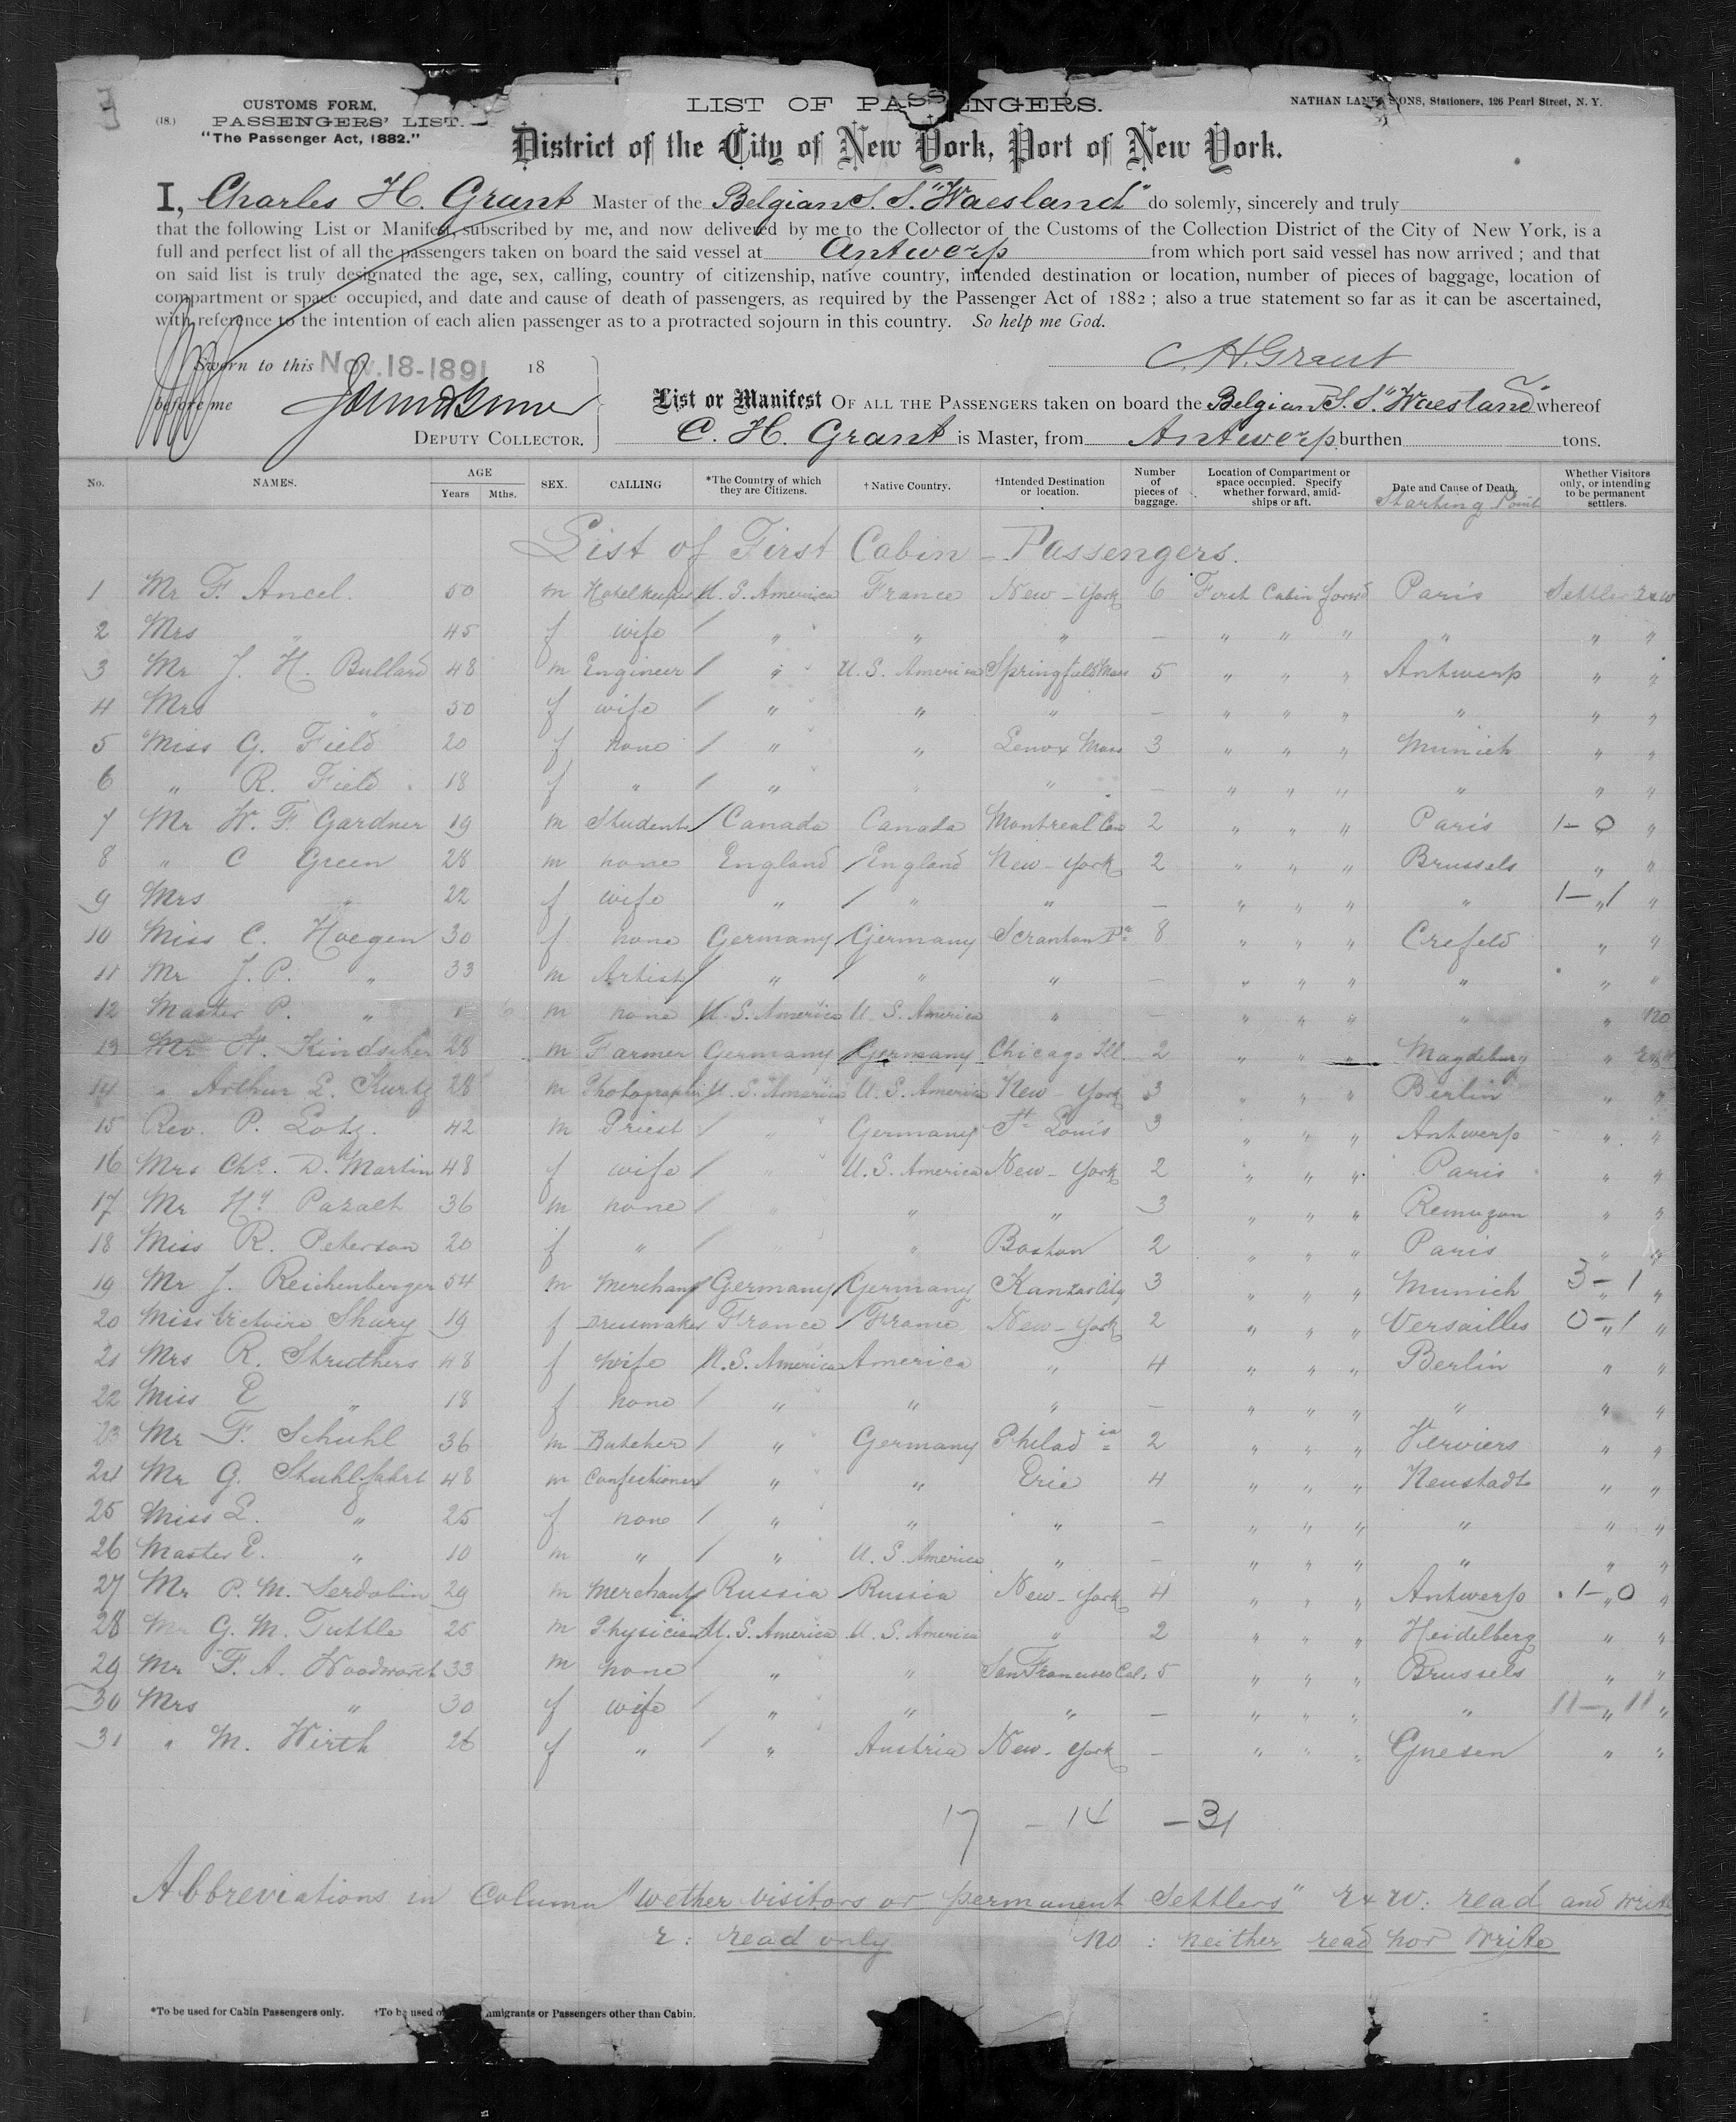 CUSTOMS FORM,
(18.) PASSENGERS' LIST.
"The Passenger Act, 1882."
LIST OF PASSENGERS.
NATHAN LANE SONS, Stationers, 126 Pearl Street, N. Y.
District of the City of New York, Port of New York.
I, Charles H. Grant Master of the Belgian S. S. "Waesland" do solemly, sincerely and truly
that the following List or Manifest, subscribed by me, and now delivered by me to the Collector of the Customs of the Collection District of the City of New York, is a
full and perfect list of all the passengers taken on board the said vessel at Antwerp from which port said vessel has now arrived ; and that
on said list is truly designated the age, sex, calling, country of citizenship, native country, intended destination or location, number of pieces of baggage, location of
compartment or space occupied, and date and cause of death of passengers, as required by the Passenger Act of 1882 ; also a true statement so far as it can be ascertained,
with reference to the intention of each alien passenger as to a protracted sojourn in this country. So help me God.
Sworn to this Nov. 18-1891 18
C. H. Grant
before me
DEPUTY COLLECTOR.
List or Manifest OF ALL THE PASSENGERS taken on board the Belgian S. S. "Waesland" whereof
C. H. Grant is Master, from Antwerp burthen tons.
No. NAMES. AGE Years Mths. SEX. CALLING *The Country of which they are Citizens. †Native Country. †Intended Destination or location. Number of pieces of baggage. Location of Compartment or space occupied. Specify whether forward, amidships or aft. Date and Cause of Death. Starting Point Whether Visitors only, or intending to be permanent settlers.
List of First Cabin - Passengers.
1 Mr F. Ancel. 50 m Hotelkeeper U. S. America France New-York 6 First Cabin forwd Paris Settler r&w
2 Mrs " 45 f wife " " " — " " " " " "
3 Mr J. H. Bullard 48 m Engineer " U. S. America Springfield Mass 5 " " " Antwerp " "
4 Mrs " 50 f wife " " " — " " " " " "
5 Miss G. Field 20 f none " " Lenox Mass 3 " " " Munich " "
6 " R. Field 18 f " " " " — " " " " " "
7 Mr W. F. Gardner 19 m Student Canada Canada Montreal Can 2 " " " Paris 1-0 " "
8 " C Green 28 m none England England New-York 2 " " " Brussels " "
9 Mrs " 22 f wife " " " — " " " " 1-1 " "
10 Miss C. Hoegen 30 f none Germany Germany Scranton Pa 8 " " " Crefeld " "
11 Mr J. P. " 33 m Artist " " " — " " " " " "
12 Master P. " 1 6 m none U. S. America U. S. America " — " " " " " no
13 Mr H. Kindscher 28 m Farmer Germany Germany Chicago Ill. 2 " " " Magdeburg " r&w
14 " Arthur L. Kurtz 28 m Photographer U. S. America U. S. America New-York 3 " " " Berlin " "
15 Rev. P. Lotz. 42 m Priest " Germany St Louis 3 " " " Antwerp " "
16 Mrs Chs. D. Martin 48 f wife " U. S. America New-York 2 " " " Paris " "
17 Mr Hy 36 m none " " " 3 " " " " "
18 Miss R. Peterson 20 f " " " Boston 2 " " " Paris " "
19 Mr J. Reichenberger 54 m Merchant Germany Germany Kanzas City 3 " " " Munich 3-1 " "
20 Miss Victoire Shury 19 f Dressmaker France France New-York 2 " " " Versailles 0-1 " "
21 Mrs R. Struthers 48 f wife U. S. America America " 4 " " " Berlin " "
22 Miss E " 18 f none " " " — " " " " " "
23 Mr F. Schuhl 36 m Butcher " Germany Philadia 2 " " " Verviers " "
24 Mr G. Stuhlfahrt 48 m Confectioner " " Erie 4 " " " Neustadt " "
25 Miss L. " 25 f none " " " — " " " " " "
26 Master E. " 10 m " " U. S. America " — " " " " " "
27 Mr P. M. Serdobin 29 m Merchant Russia Russia New-York 4 " " " Antwerp 1-0 " "
28 Mr G. M. Tuttle 25 m Physician U. S. America U. S. America " 2 " " " Heidelberg " "
29 Mr F. A. Woodworth 33 m none " " San Francisco Cal. 5 " " " Brussels " "
30 Mrs " 30 f wife " " " — " " " " 11-11 " "
31 " M. Wirth 26 f " " Austria New-York — " " " Gnesen " "
17 - 14 - 31
Abbreviations in Column "wether visitors or permanent Settlers" r & w: read and write
r: read only no: neither read nor write
*To be used for Cabin Passengers only. †To be used migrants or Passengers other than Cabin.